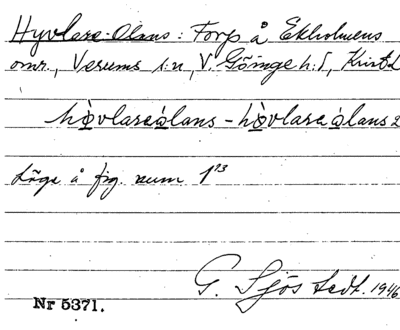 Hyvlare-Olans: Torp å Ekholmens
omr., Verums s:n, V. Göinge h:d, Krist. L
hòvlareólans - hòvlareólans 2
Läge å fig. num 1²³
G. Sjöstedt. 1946
Nr 5371.